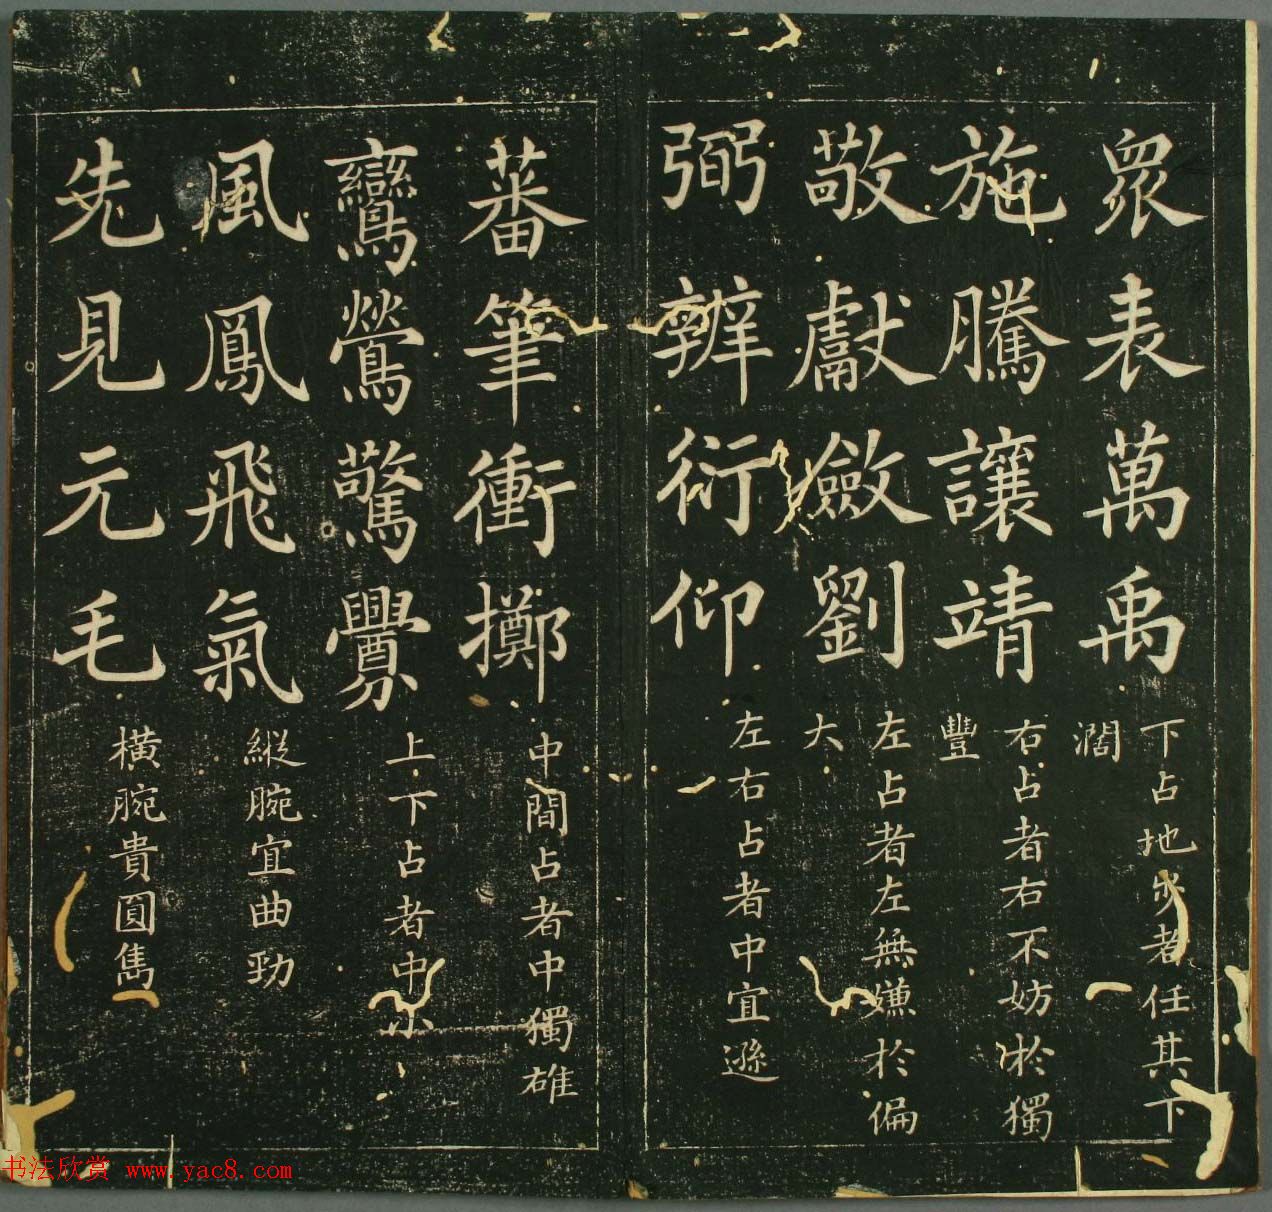 眾表萬禹
下占地步者任其下
濶
施騰讓靖
右占者右不妨於獨
豐
敬獻斂劉
左占者左無嫌於偏
大
弼辨衍仰
左右占者中宜遜
蕃筆衝擲
中間占者中獨雄
鸞鶯驚釁
上下占者中小
風鳳飛氣
縱腕宜曲勁
先見元毛
橫腕貴圓雋
书法欣赏 www.yac8.com